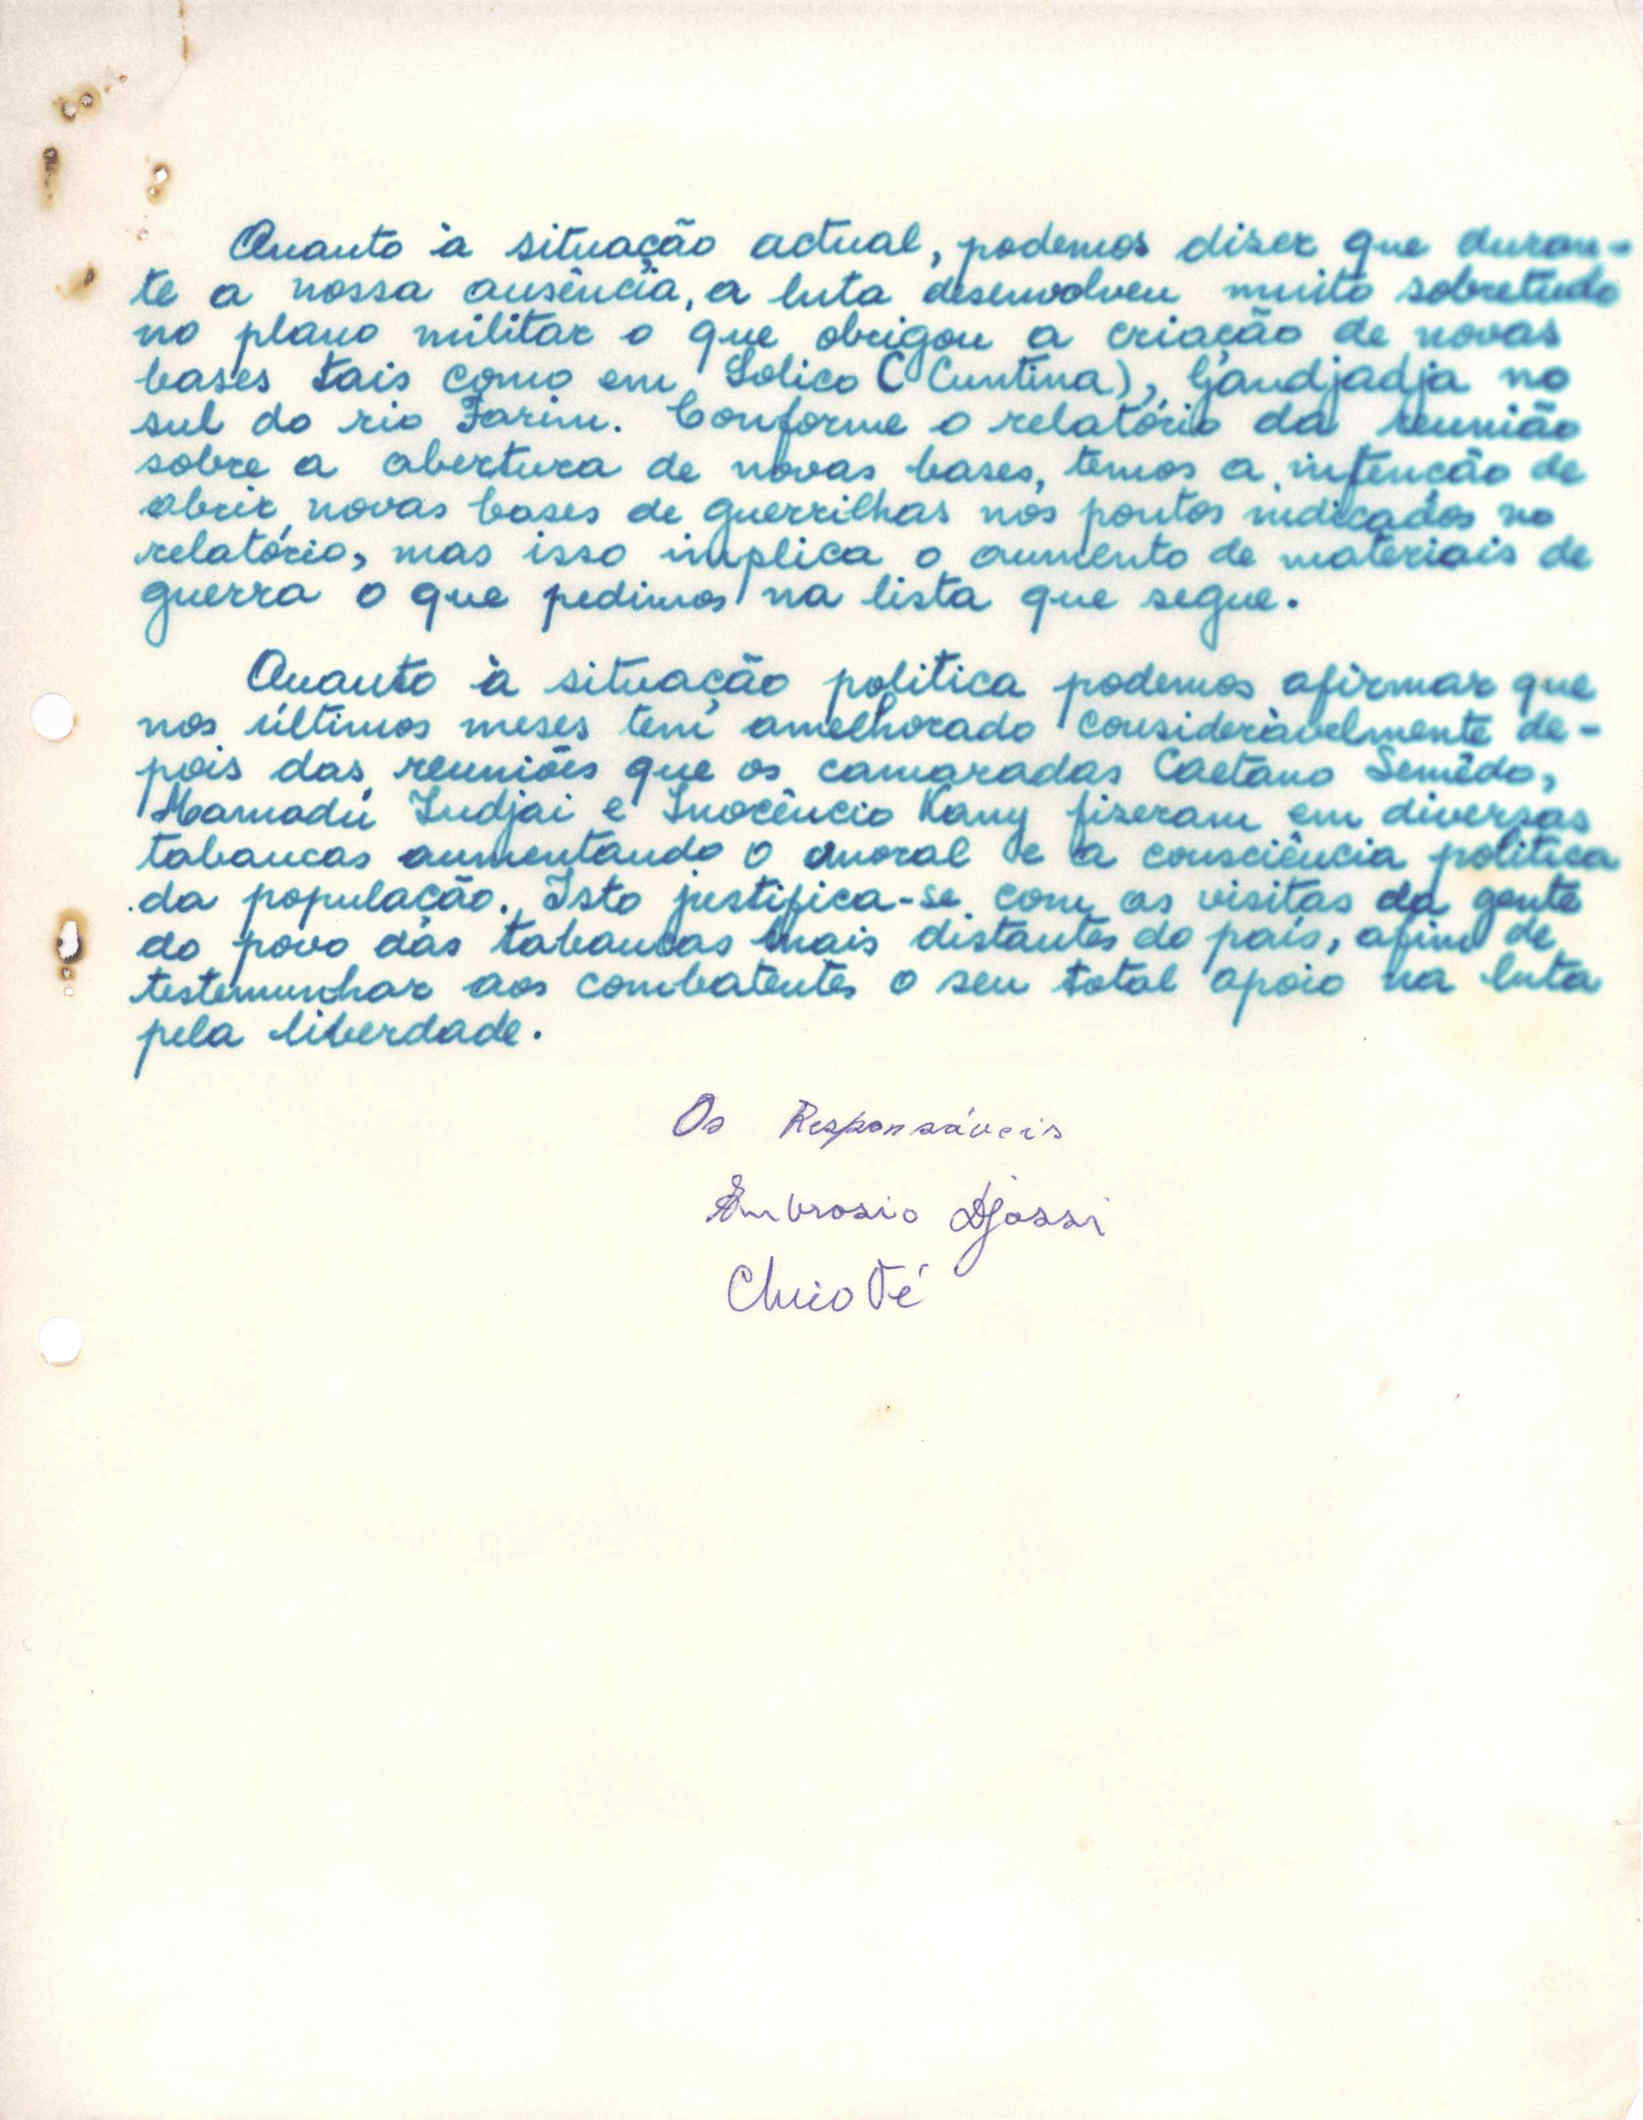 Quanto à situação actual, podemos dizer que duran-
te a nossa ausência, a luta desenvolveu muito sobretudo
no plano militar o que obrigou a criação de novas
bases tais como em Solico (Cuntima), Gandjadja no
sul do rio Farim. Conforme o relatório da reunião
sobre a abertura de novas bases, temos a intenção de
abrir novas bases de guerrilhas nos pontos indicados no
relatório, mas isso implica o aumento de materiais de
guerra o que pedimos na lista que segue.
Quanto à situação politica podemos afirmar que
nos últimos meses tem amelhorado consideràvelmente de-
pois das reuniões que os camaradas Caetano Semêdo,
Mamadú Indjai e Inocêncio Kany fizeram em diversas
tabancas aumentando o moral e a consciência politica
da população. Isto justifica-se com as visitas da gente
do povo das tabancas mais distantes do país, afim de
testemunhar aos combatentes o seu total apoio na luta
pela liberdade.
Os Responsáveis
Ambrosio Djassi
Chico Té